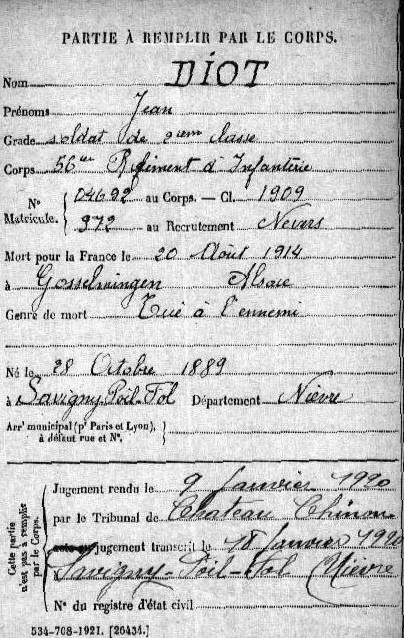 PARTIE À REMPLIR PAR LE CORPS.
Nom DIOT
Prénoms Jean
Grade soldat de 2ieme classe
Corps 56me Régiment d'Infanterie
N° Matricule. { 04692 au Corps. — Cl. 1909
972 au Recrutement Nevers
Mort pour la France le 20 Août 1914
à Gosselmingen Alsace
Genre de mort Tué à l'ennemi
Né le 28 Octobre 1889
à Savigny-Poil-Fol Département Nièvre
Arrt municipal (pr Paris et Lyon), à défaut rue et N°. {
Cette partie n'est pas à remplir par le Corps.
Jugement rendu le 9 Janvier 1920
par le Tribunal de Chateau Chinon
jugement transcrit le 18 Janvier 1920
à Savigny-Poil-Fol Nièvre
N° du registre d'état civil
534-708-1921. [26434.]